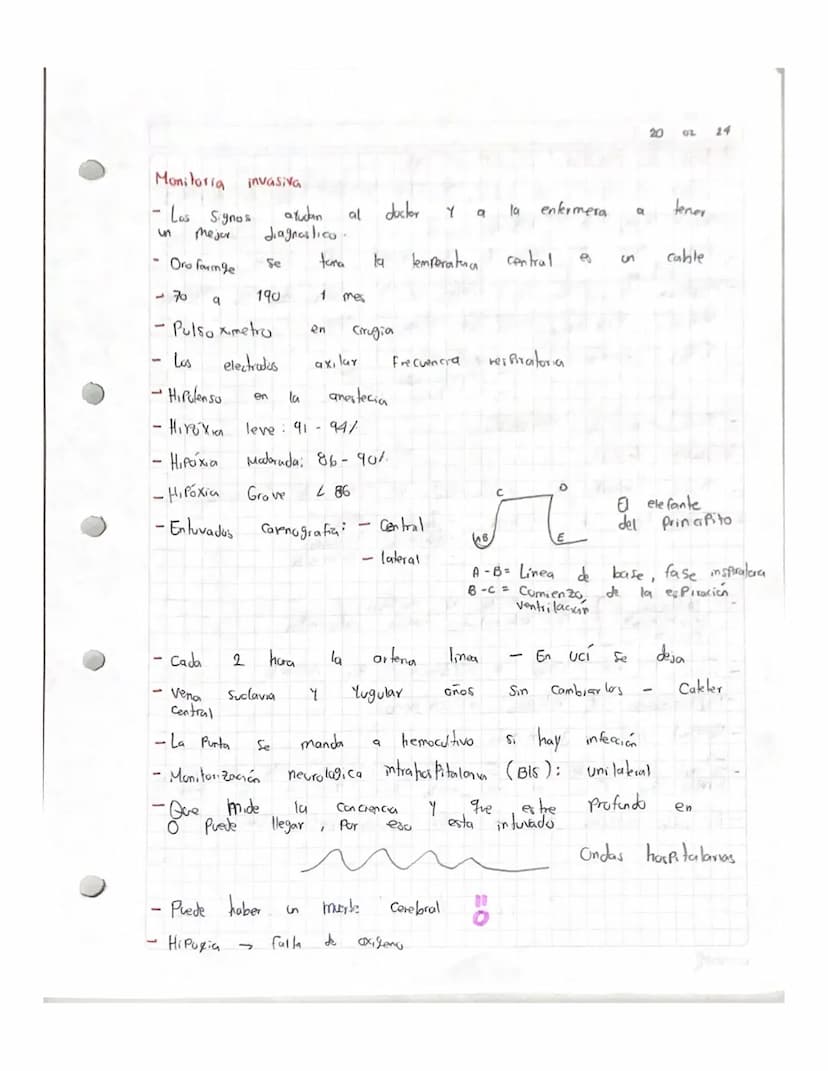 20 02 24
Monitoria invasiva
- Los Signos ayudan al doctor y a la enfermera a tener
un mejor diagnostico.
- Orofaringe se toma la temperatura central es un cable
- 70 a 190 1 mes
- Pulsoximetro en cirugia
- Los electrodos axilar frecuencia respiratoria
- Hipotenso en la anestecia
- Hipóxia leve: 91 - 94%
- Hipóxia Moderada: 86 - 90%
- Hipóxia Grave < 86
C D
El elefante
del principito
- Entuvados Carnografia: - Central
AB E
- lateral
A - B = Línea de base, fase inspiratora
B - C = Comienzo de la espiración
ventilación
- Cada 2 hora la arteria linea - En UCÍ se deja
- Vena Suclavia y Yugular años Sin Cambiarlos - Cateter
Central
- La Punta se manda a hemocultivo si hay infección
- Monitorización neurologica intrahospitalaria (BIS): unilateral
- Que mide la conciencia y que estre Profundo en
0 puede llegar, por eso esta intuvado
Ondas hospitalarias
- Puede haber un muerte Cerebral = 0
- Hipoxia → falla de oxigeno